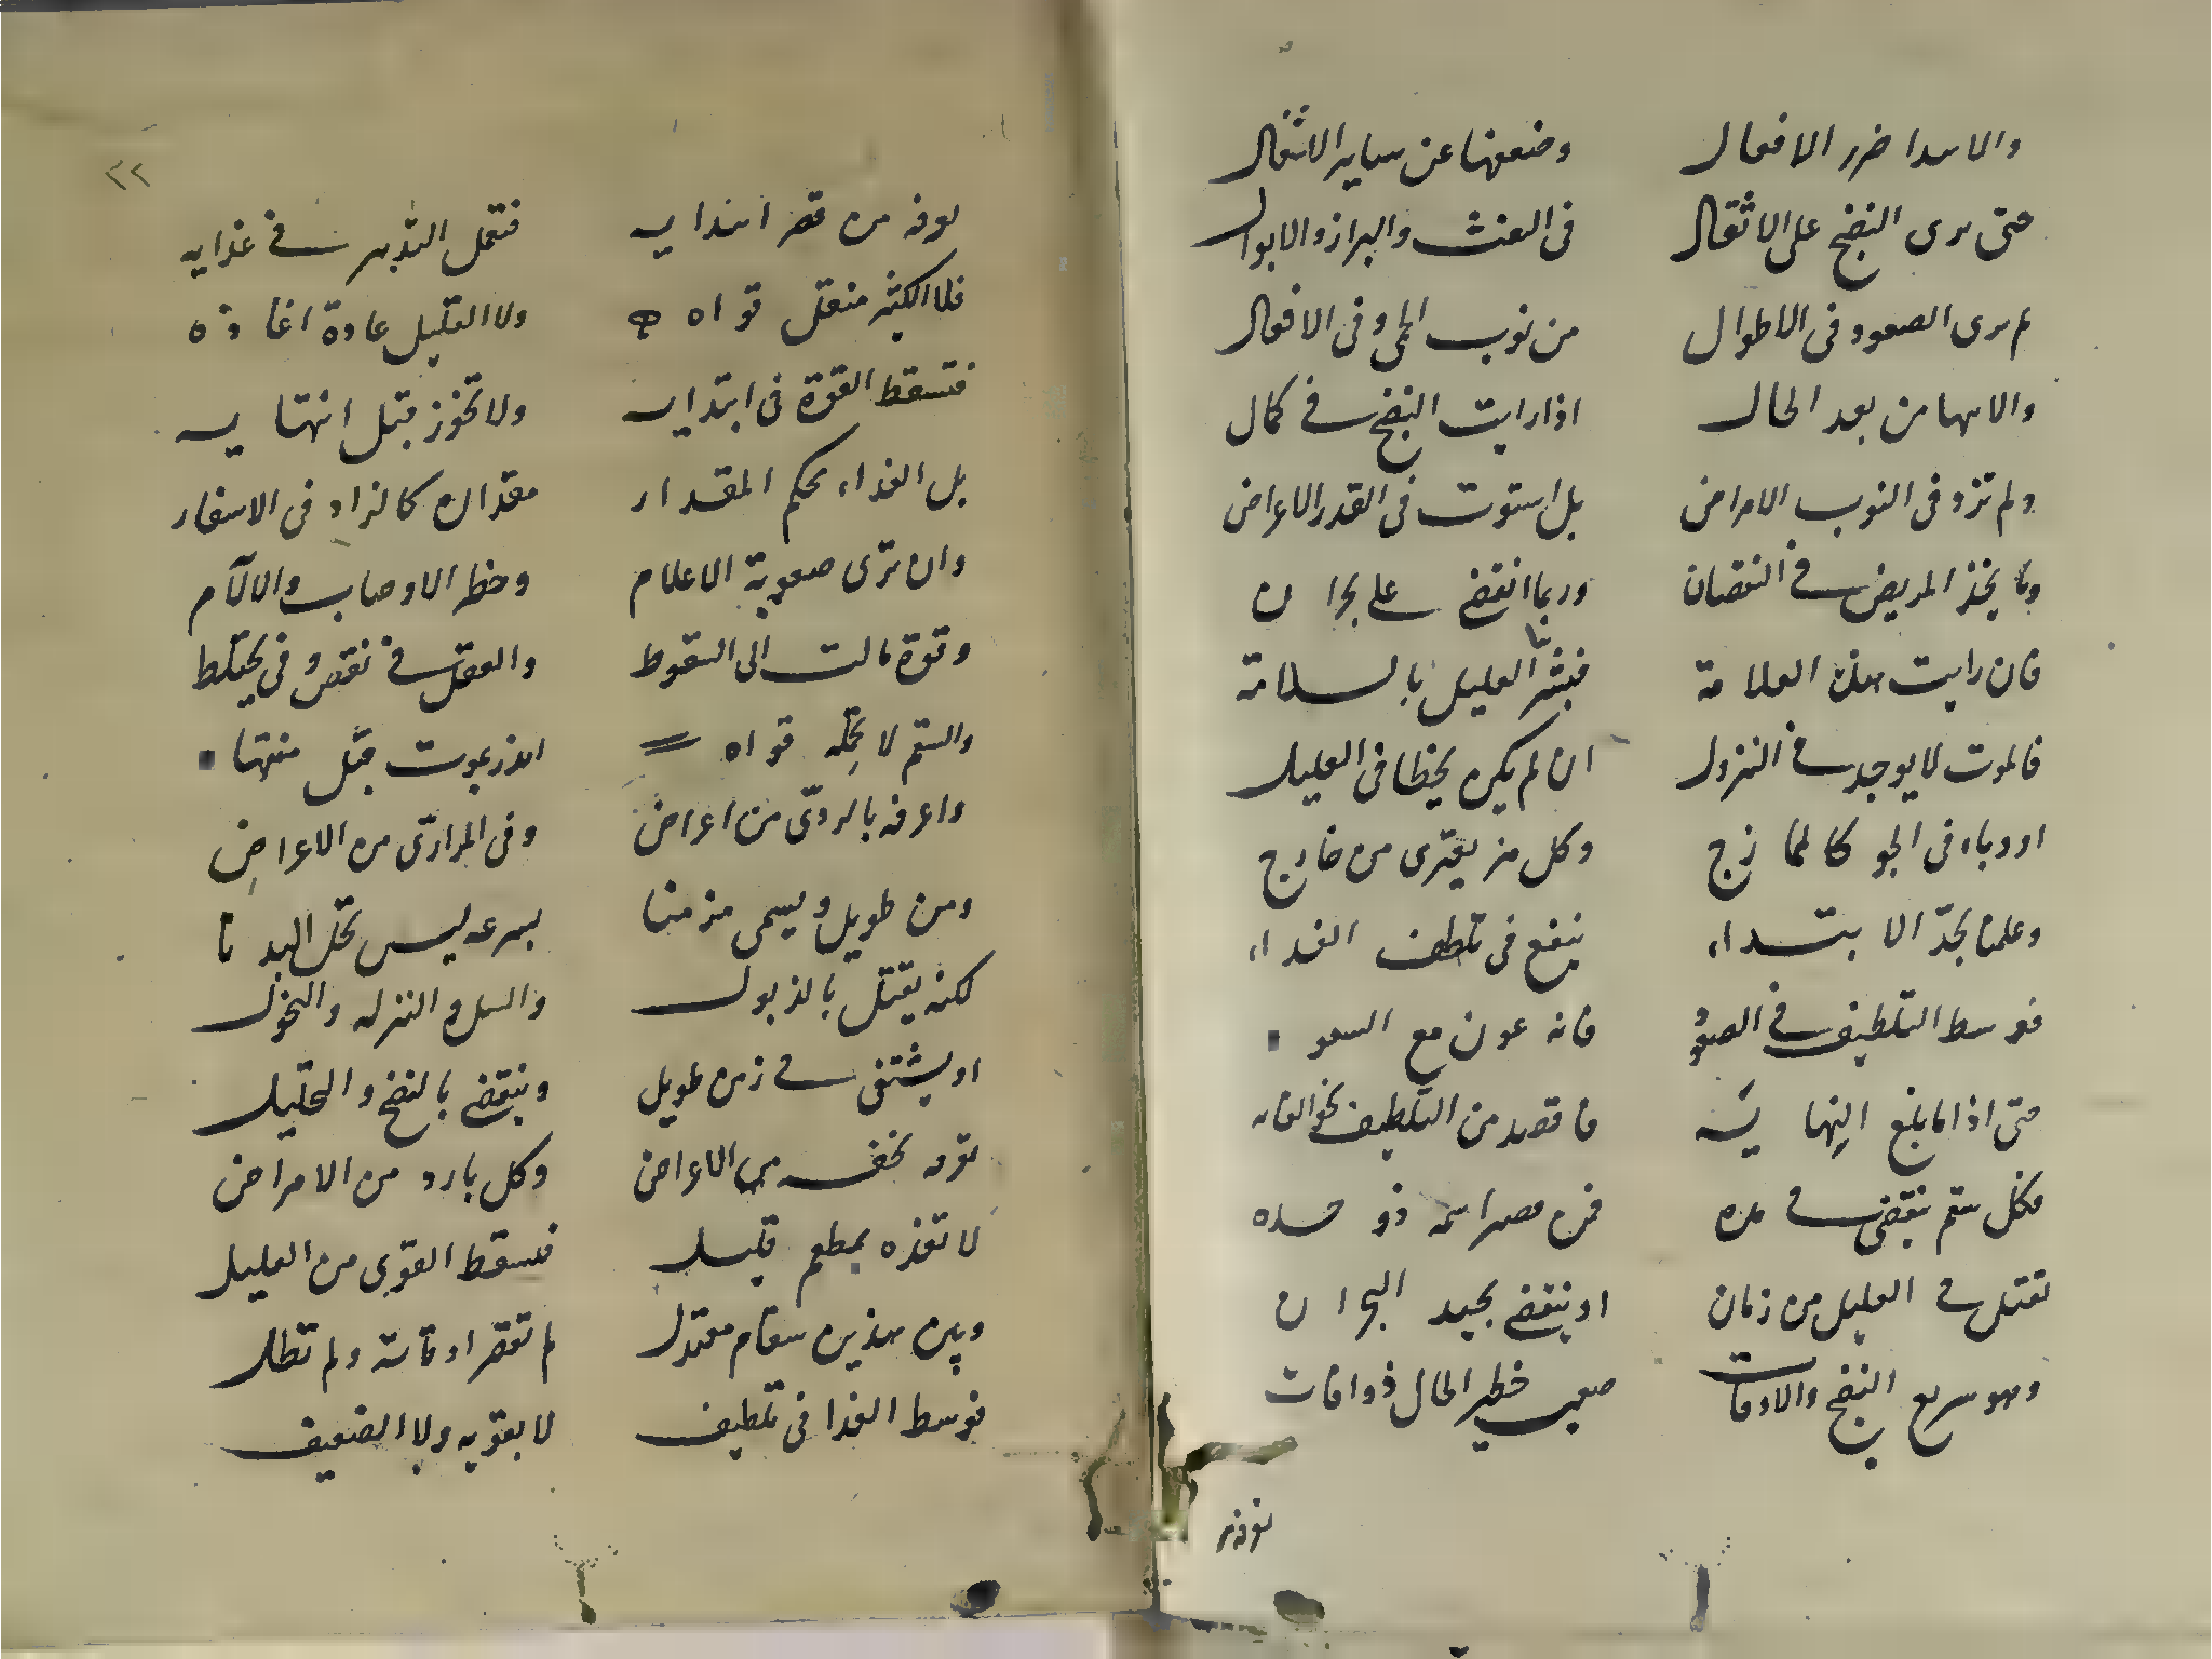 والابتدا ضرر الافعال وضعفها عن ساير الاثقال
حتى يرى النضج على الاثقال فى النفث والبراز والابوال
ثم يرى الصعود فى الاطوال من نوب الحمى وفى الافعال
والانتها من بعد الحال اذا رايت النضج في كمال
ولم تزد فى النوب الامراض بل استوت فى القدر الاعراض
وياخذ المريض في النقصان وربما انقضى على بحران
فان رايت هذه العلامة فبشر العليل بالسلامة
فالموت لا يوجد في النزول ان لم يكن يخطا فى العليل
او وباء فى الجو كالمازج وكل من يعترى من خارج
وعلمنا بحد الابتداء ينفع فى تلطف الغداء
فوسط التلطيف في الصعود فانه عون مع السعو
حتى اذا ما بلغ النهايه فاقصد من التلطيف نحو الغايه
فكل سقم ينقضى في مده فمن قصير اسمه ذو حده
تقتل في العليل من زمان او ينقضى بجيد البحران
وهو سريع النضج والاوقات صعب خطير الحال ذو افات
توفه من قصر ابتدايه فتحمل التدبير في غذايه
فلا الكثير منقل قواه ولا القليل عادة اغاذه
فتسقط القوة فى ابتدايه ولا تخوز قبل انتهايه
بل الغذاء محكم المقدار مقداره كالزاد فى الاسفار
وان ترى صعوبة الاعلام وخطر الاوصاب والالآم
وقوة مالت الى السقوط والعقل في نقص وفى يختلط
والسقم لا تحمله قواه انذر بموت قبل منتها
واعرفه بالردى من اعراض وفى المرارى من الاعراض
ومن طويل ويسمى مزمنا بسرعه ليس يحل البدنا
لكنه يقتل بالذبول والسل والنزله والنحول
او يشتفى في زمن طويل وينقضى بالنضج والتحليل
توته تخف من الاعراض وكل بارد من الامراض
لا تغذه بمطعم قليل فتسقط القوى من العليل
وبين هذين سقام معتدل لم تقصر اوقاته ولم تطل
فوسط الغذا فى تلطيف لا بقويه ولا الضعيف
توفه
٢٢